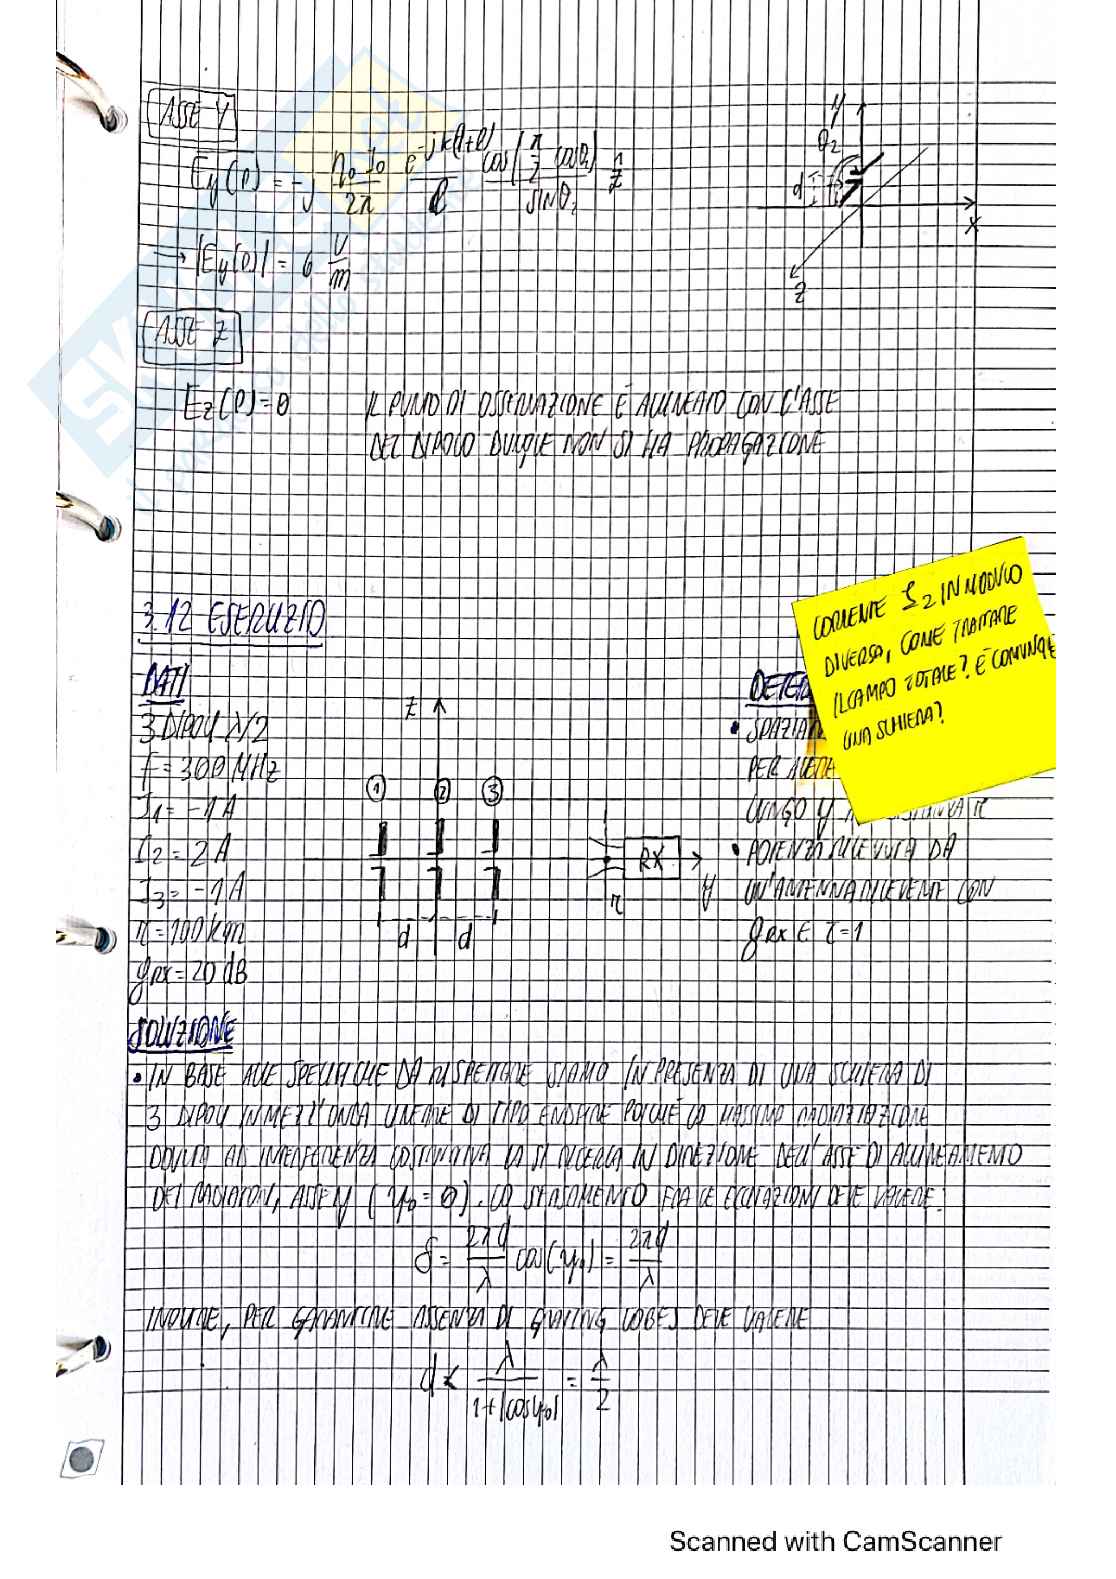 ASSE Y
Ey(P) = -j η₀ I₀ / 2π e^{-jk(l+l)} / l cos(π/2 cosθ₂) / sinθ₂ ẑ
y
θ₂
d
x
z
→ |Ey(P)| = 6 V/m
ASSE Z
Ez(P) = 0 IL PUNTO DI OSSERVAZIONE È ALLINEATO CON L'ASSE
DEL DIPOLO DUNQUE NON SI HA PROPAGAZIONE
3.12 ESERCIZIO
CORRENTE I₂ IN MODULO
DIVERSO, COME TRATTARE
IL CAMPO TOTALE? È COMUNQUE
UNA SCHIERA?
DATI
3 DIPOLI λ/2
f = 300 MHz
I₁ = -1 A
I₂ = 2 A
I₃ = -1 A
r = 100 km
gRX = 20 dB
z
① ② ③
RX
r
y
d d
DETER
• SPAZIA
PER AVERE
LUNGO Y
• POTENZA RICEVUTA DA
UN'ANTENNA RICEVENTE CON
gRX E τ = 1
SOLUZIONE
• IN BASE ALLE SPECIFICHE DA RISPETTARE SIAMO IN PRESENZA DI UNA SCHIERA DI
3 DIPOLI IN MEZZ'ONDA LINEARE DI TIPO ENDFIRE POICHÉ LA MASSIMA RADIAZIONE
DOVUTA AD INTERFERENZA COSTRUTTIVA LA SI RICERCA IN DIREZIONE DELL'ASSE DI ALLINEAMENTO
DEI RADIATORI, ASSE Y (ψ₀ = 0). LO SFASAMENTO FRA LE ECCITAZIONI DEVE VALERE:
δ = 2πd/λ cos(ψ₀) = 2πd/λ
INOLTRE, PER GARANTIRE ASSENZA DI GRATING LOBES DEVE VALERE
d < λ / 1+|cosψ₀| = λ/2
Scanned with CamScanner